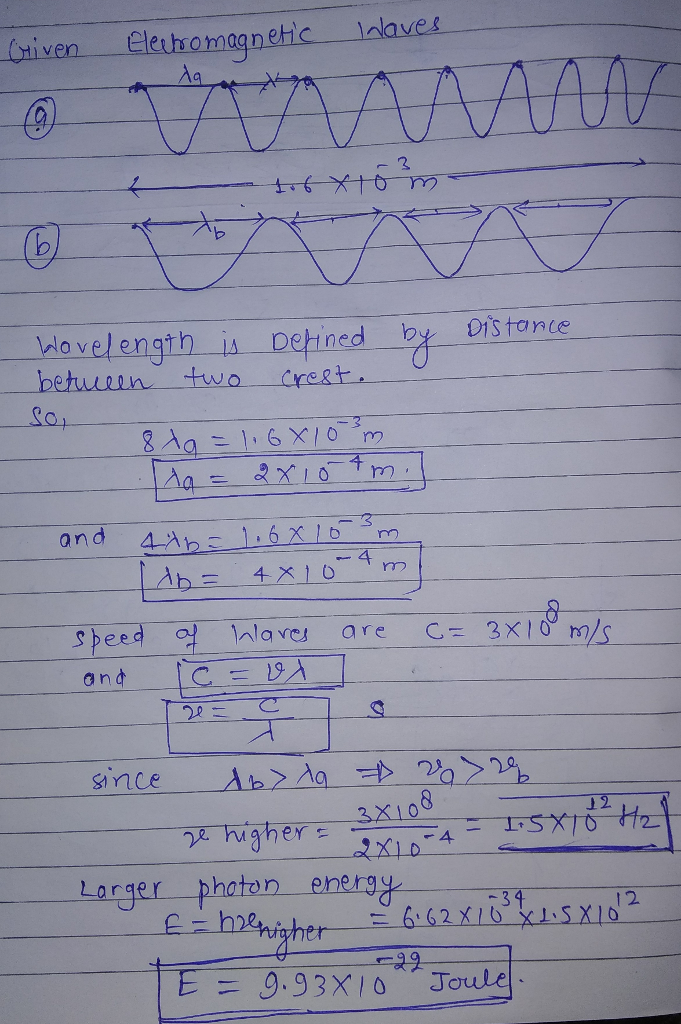 Given Electromagnetic Waves
λa λ
(a)
1.6 × 10⁻³ m
(b) λb
Wavelength is Defined by Distance
between two crest.
So,
8 λa = 1.6 × 10⁻³ m
λa = 2 × 10⁻⁴ m.
and 4 λb = 1.6 × 10⁻³ m
λb = 4 × 10⁻⁴ m
speed of Waves are C = 3×10⁸ m/s
and C = νλ
ν = C/λ
since λb > λa ⇒ νa > νb
ν higher = 3×10⁸/2×10⁻⁴ = 1.5×10¹² Hz
Larger photon energy
E = hν higher = 6.62 × 10⁻³⁴ × 1.5 × 10¹²
E = 9.93 × 10⁻²² Joule.